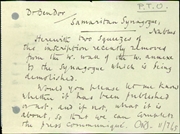 P.T.O.
Dr Bendor
Samaritan Synagogue,
Nablus
Herewith two squeezes of
this inscription recently removed
from the W. wall of the W. annexe
to the Synagogue which is being
demolished.
Would you please let me know
whether it has been published
or not: and if not, what it is
about, so that we can
the press Communiqué.